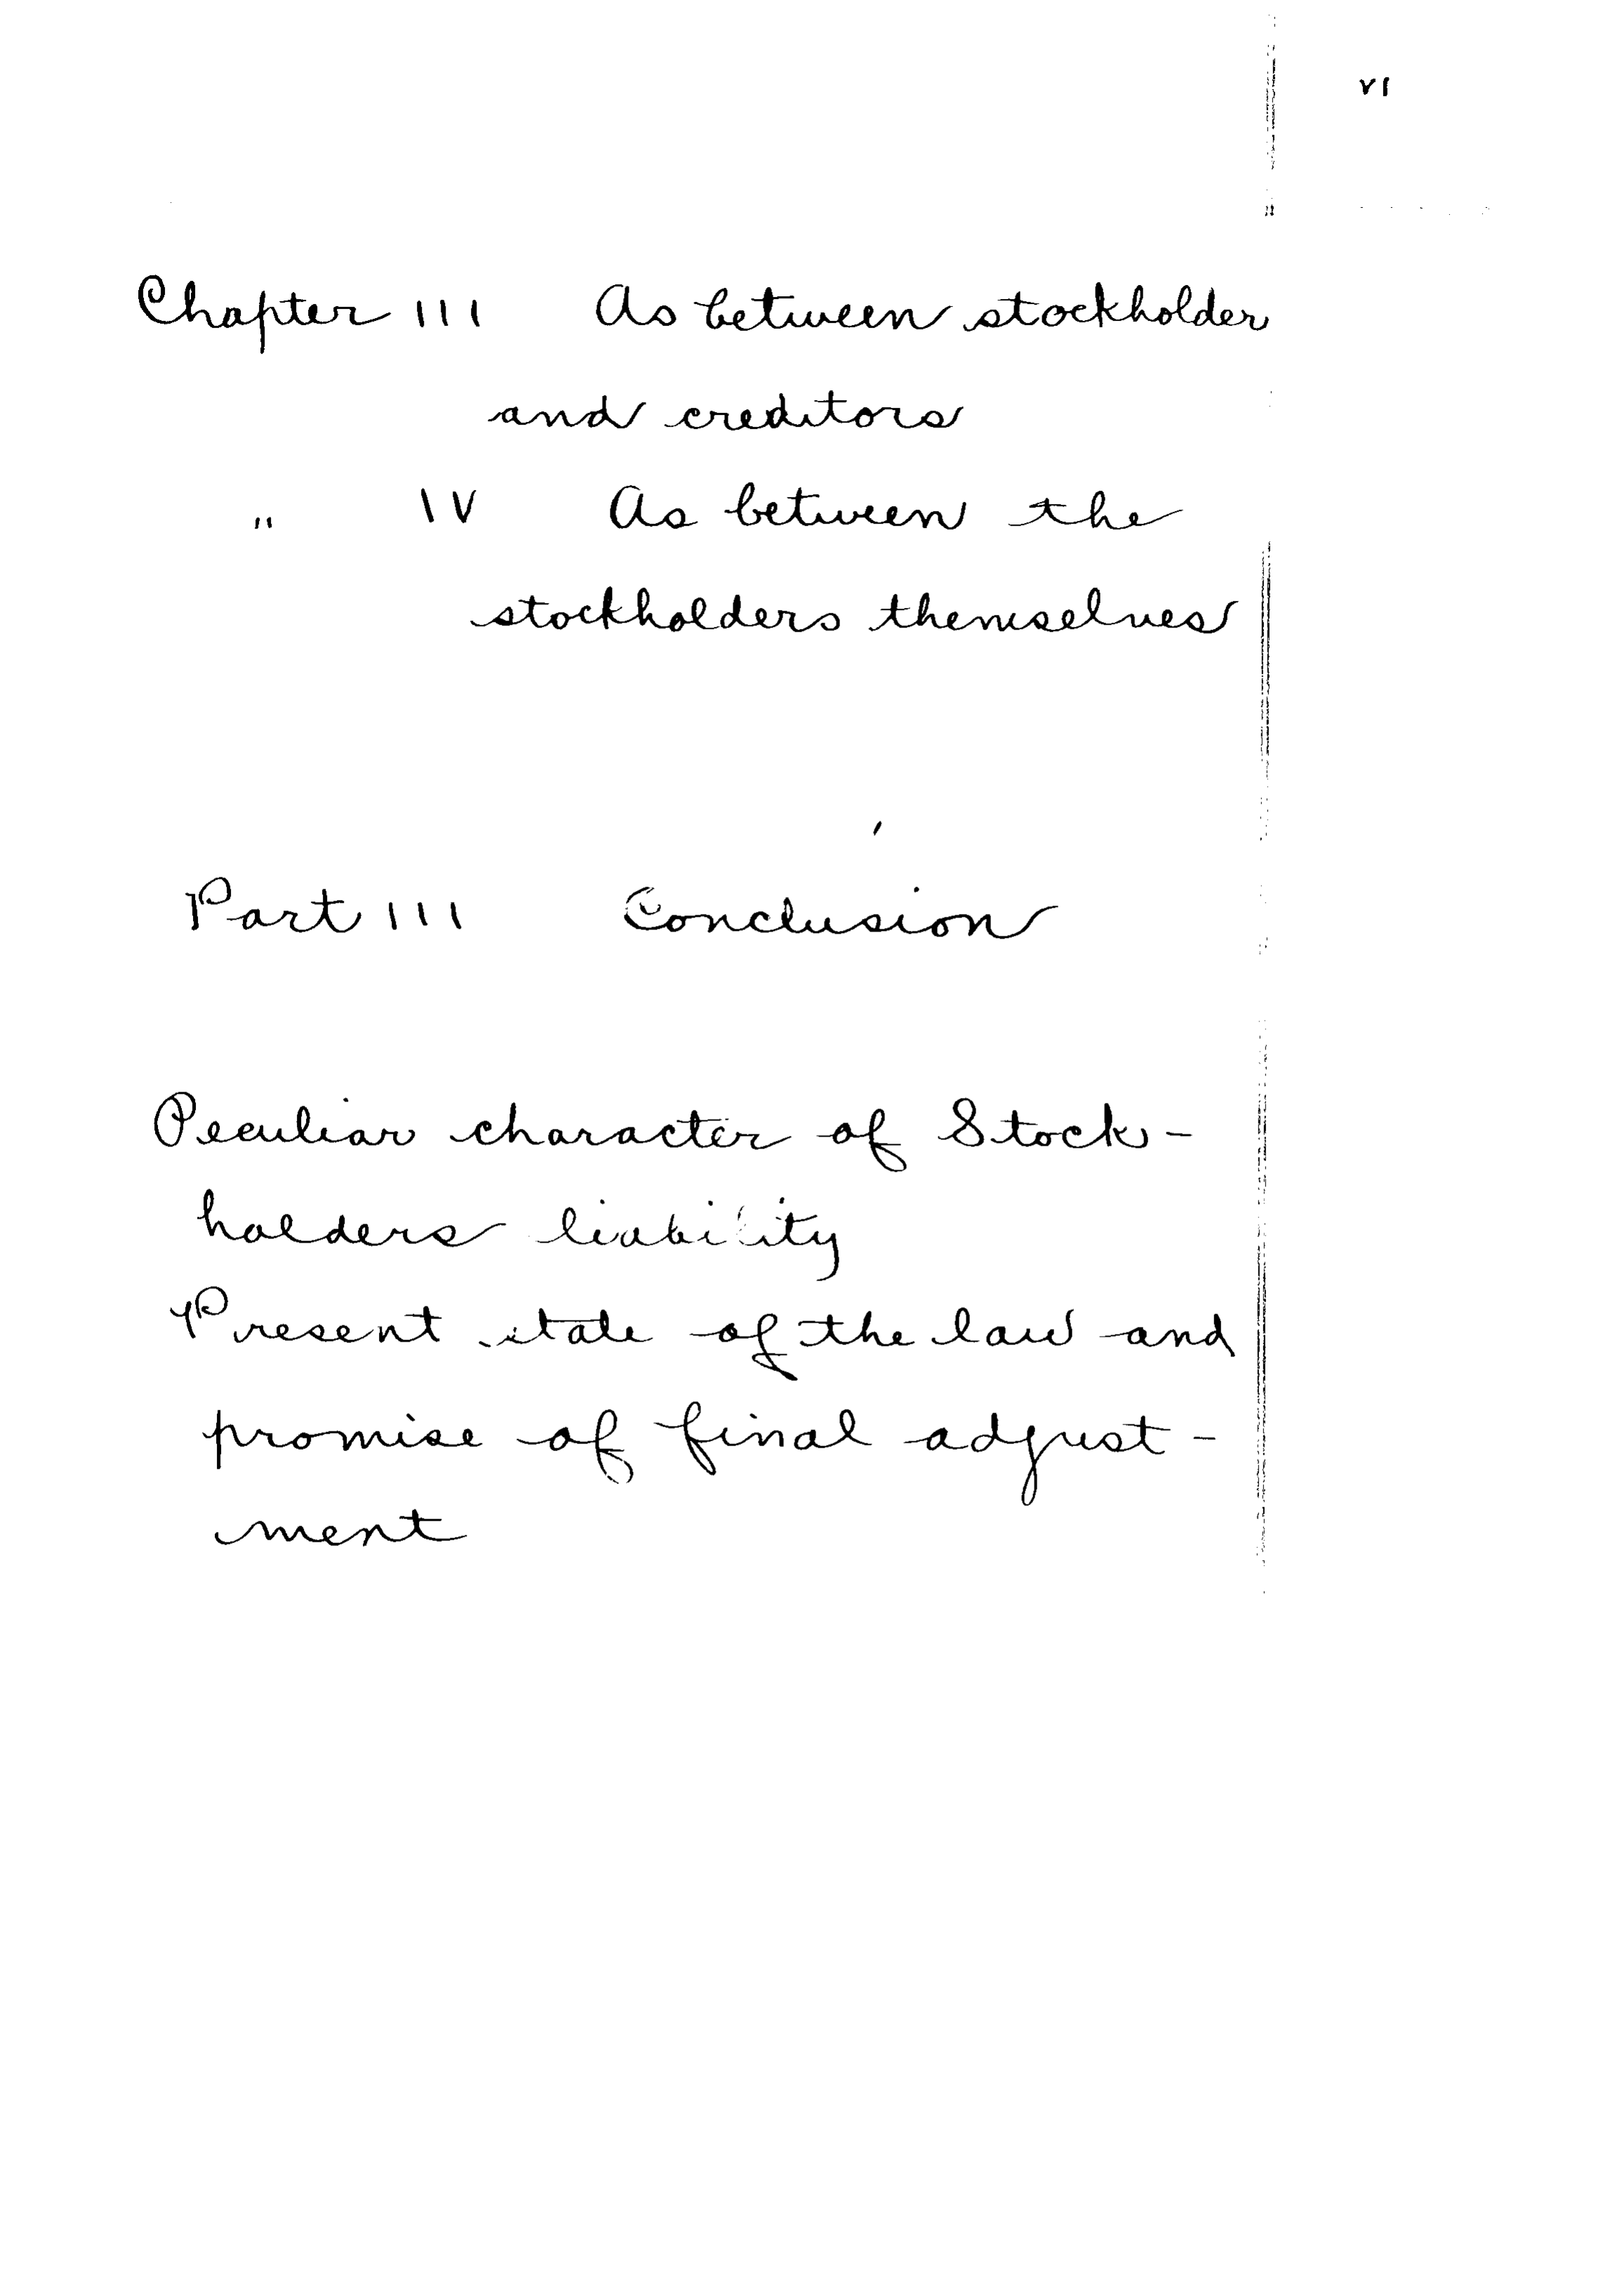 vi
Chapter III As between stockholder
and creditors
" IV As between the
stockholders themselves
Part III Conclusion
Peculiar character of Stock-
holders liability
Present state of the law and
promise of final adjust-
ment